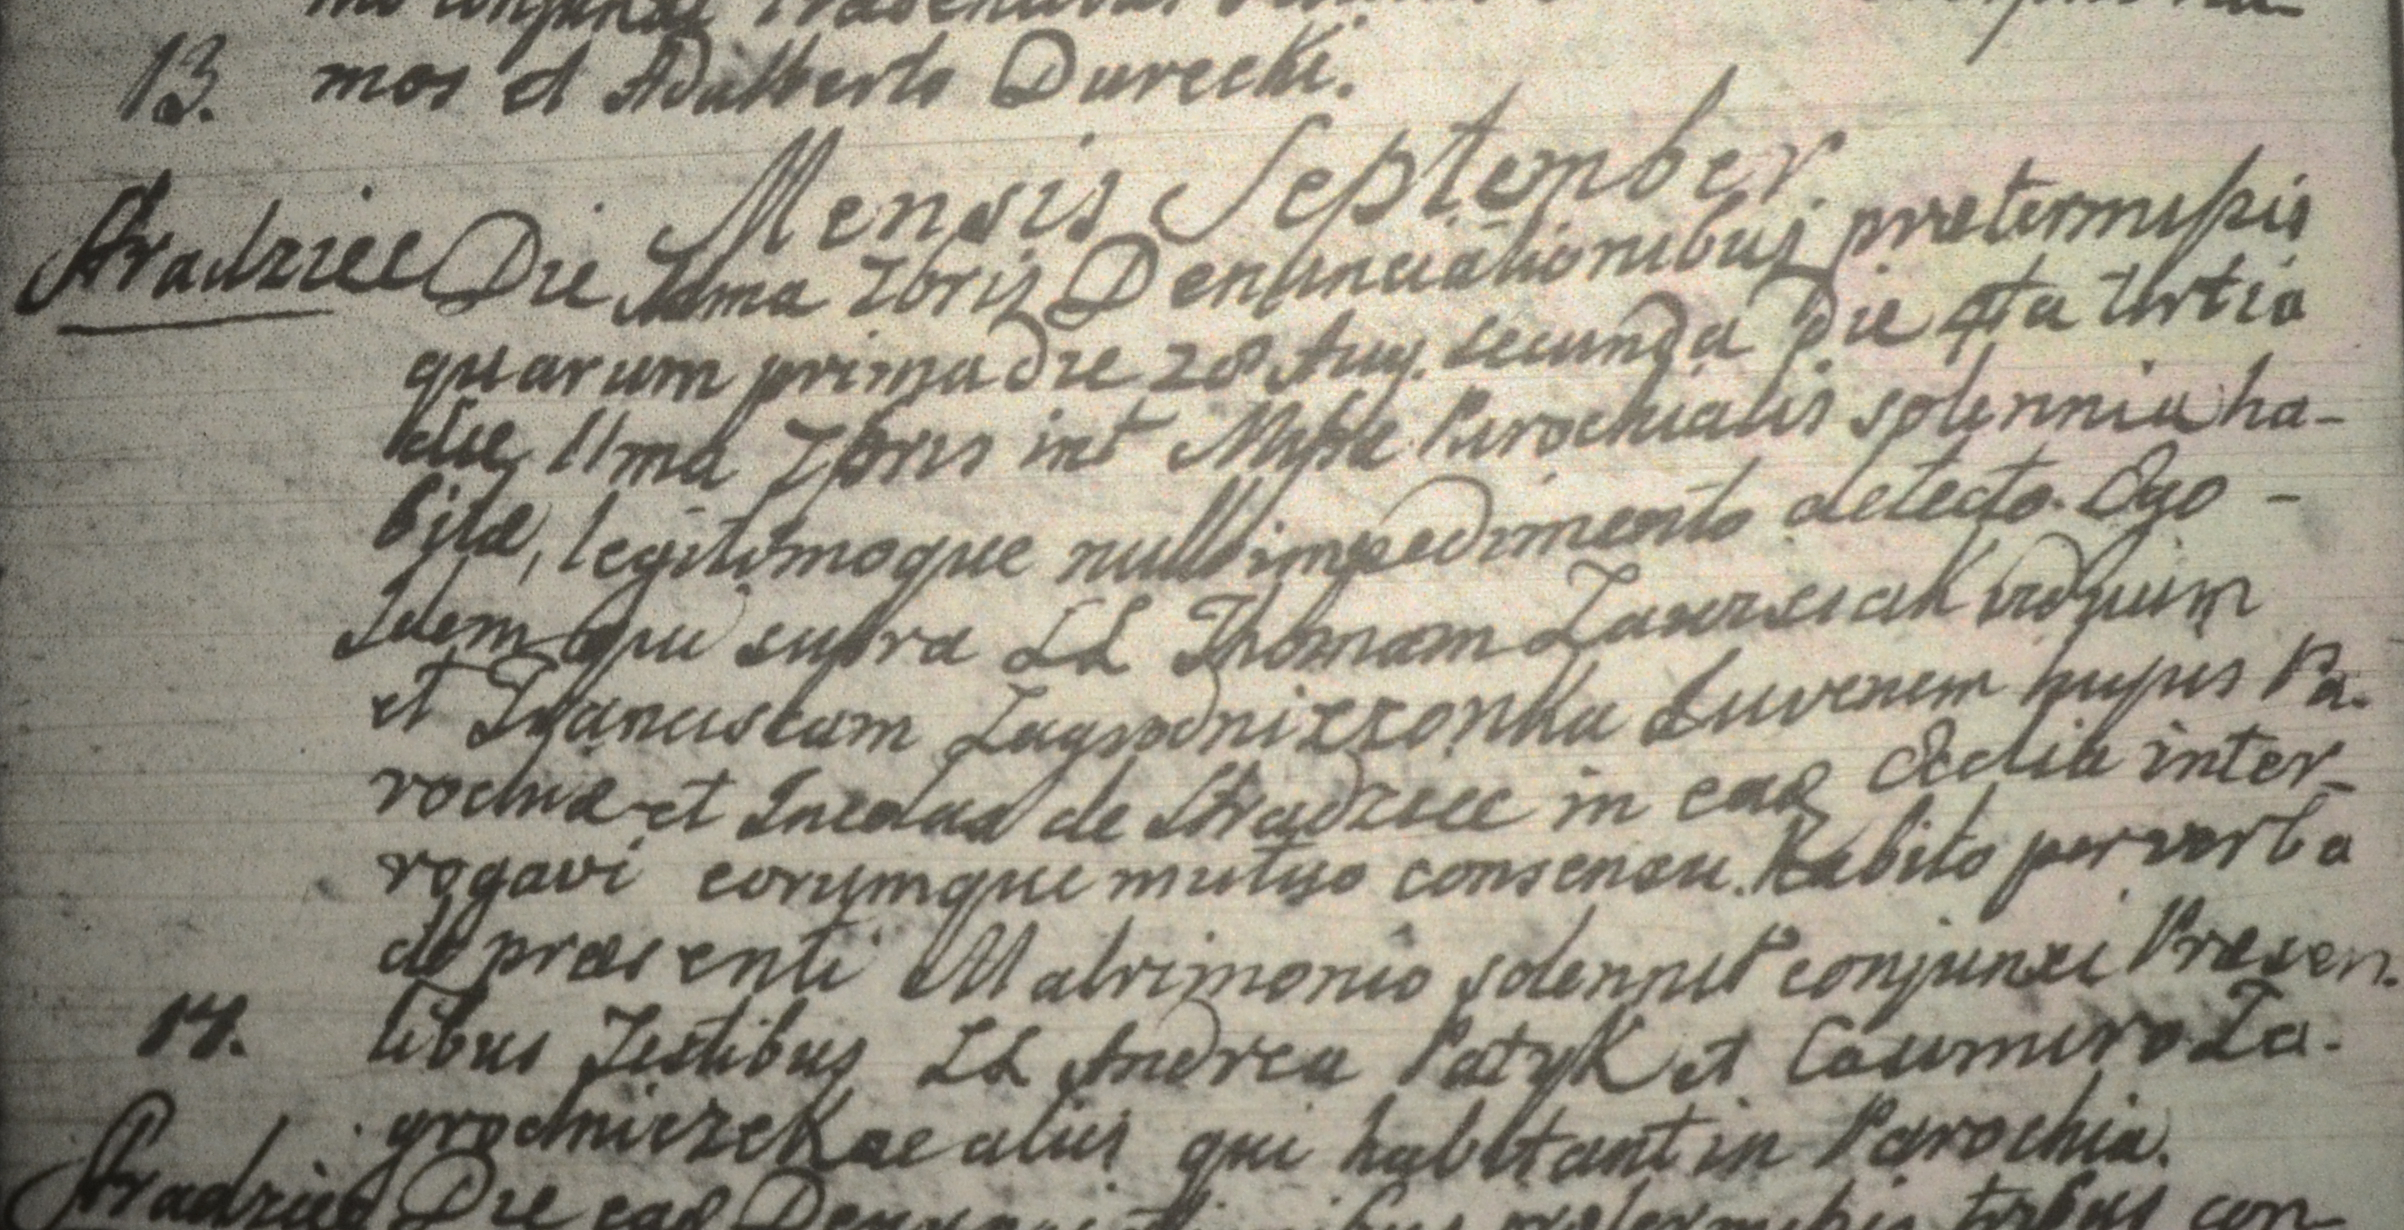 13. mos et Adalberto Durecki.
Mensis September
Stradziec Die 7bris Denunciationibus praetermissis
quarum prima die 28 Aug. secunda die 4ta tertia
die 11ma 7bris int Missae Parochialis solennia ha-
bitae, legitimoque nullo impedimento detecto. Ego -
Idem qui supra LL Thomam Ławrzeciak viduum
et Franciscam Zagrodniczzonka Juvenem hujus Pa.
rochiae et Incolas de Stradziec in eadq Aedia inter-
rogavi eorumque mutuo consensu habito per verba
de praesenti Matrimonio solennit conjunxi Praesen.
17. tibus Testibus LL Andrea Patyk et Casimiro Za.
grodniczek ac aliis qui habitant in Parochia.
Stradziec Die eadq